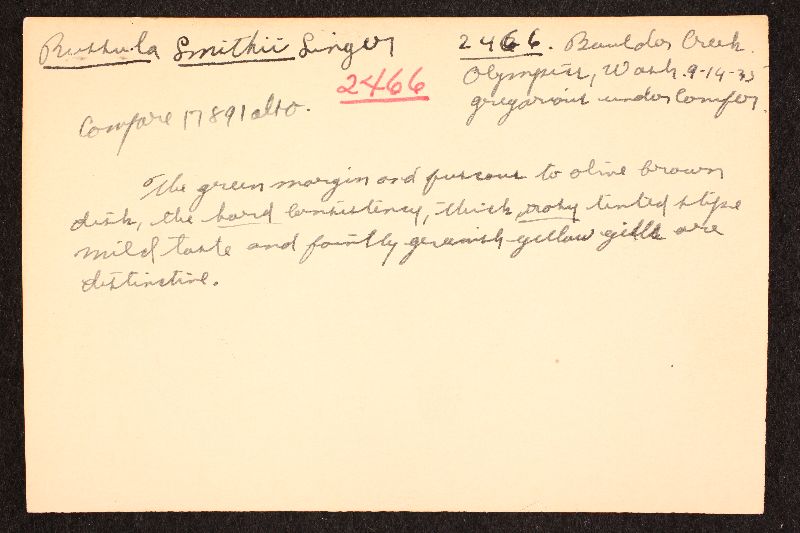 Russula Smithii Singer
2466. Boulder Creek.
Olympics, Wash. 9-14-35
2466
gregarious under Conifers.
Compare 17891 also.
The green margin and fuscous to olive brown
disk, the hard consistency, thick, rosy tinted stipe
mild taste and faintly greenish yellow gills are
distinctive.